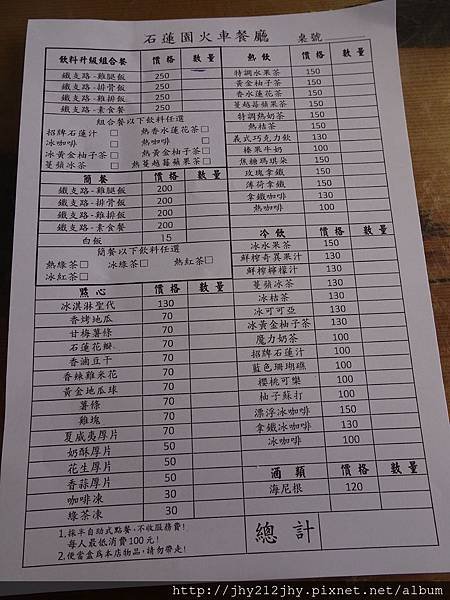 石蓮園火車餐廳 桌號
飲料升級組合餐 價格 數量
鐵支路-雞腿飯 250
鐵支路-排骨飯 250
鐵支路-雞排飯 250
鐵支路-素食餐 250
組合餐以下飲料任選
招牌石蓮汁□ 熱香水蓮花茶□
冰咖啡□ 熱咖啡□
冰黃金柚子茶□ 熱黃金柚子茶□
蔓蘋冰茶□ 熱蔓越莓蘋果茶□
簡餐 價格 數量
鐵支路-雞腿飯 200
鐵支路-排骨飯 200
鐵支路-雞排飯 200
鐵支路-素食餐 200
白飯 15
簡餐以下飲料任選
熱綠茶□ 冰綠茶□ 熱紅茶□
冰紅茶□
點心 價格 數量
冰淇淋聖代 130
香烤地瓜 70
甘梅薯條 70
石蓮花瓣 70
香滷豆干 70
香辣雞米花 70
黃金地瓜球 70
薯條 70
雞塊 70
夏威夷厚片 70
奶酥厚片 50
花生厚片 50
香蒜厚片 50
咖啡凍 30
綠茶凍 30
1.採半自助式點餐,不收服務費!
每人最低消費100元!
2.便當盒為本店物品,請勿帶走!
熱飲 價格 數量
特調水果茶 150
黃金柚子茶 150
香水蓮花茶 150
蔓越莓蘋果茶 150
特調熱奶茶 150
熱桔茶 150
義式巧克力飲 130
榛果牛奶 100
焦糖瑪琪朵 150
玫瑰拿鐵 150
薄荷拿鐵 150
拿鐵咖啡 130
熱咖啡 100
冷飲 價格 數量
冰水果茶 150
鮮榨奇異果汁 130
鮮榨檸檬汁 130
蔓蘋冰茶 130
冰桔茶 130
冰可可亞 130
冰黃金柚子茶 130
魔力奶茶 100
招牌石蓮汁 100
藍色珊瑚礁 100
櫻桃可樂 100
柚子蘇打 100
漂浮冰咖啡 150
拿鐵冰咖啡 130
冰咖啡 100
酒類 價格 數量
海尼根 120
總計
http://jhy212jhy.pixnet.net/album